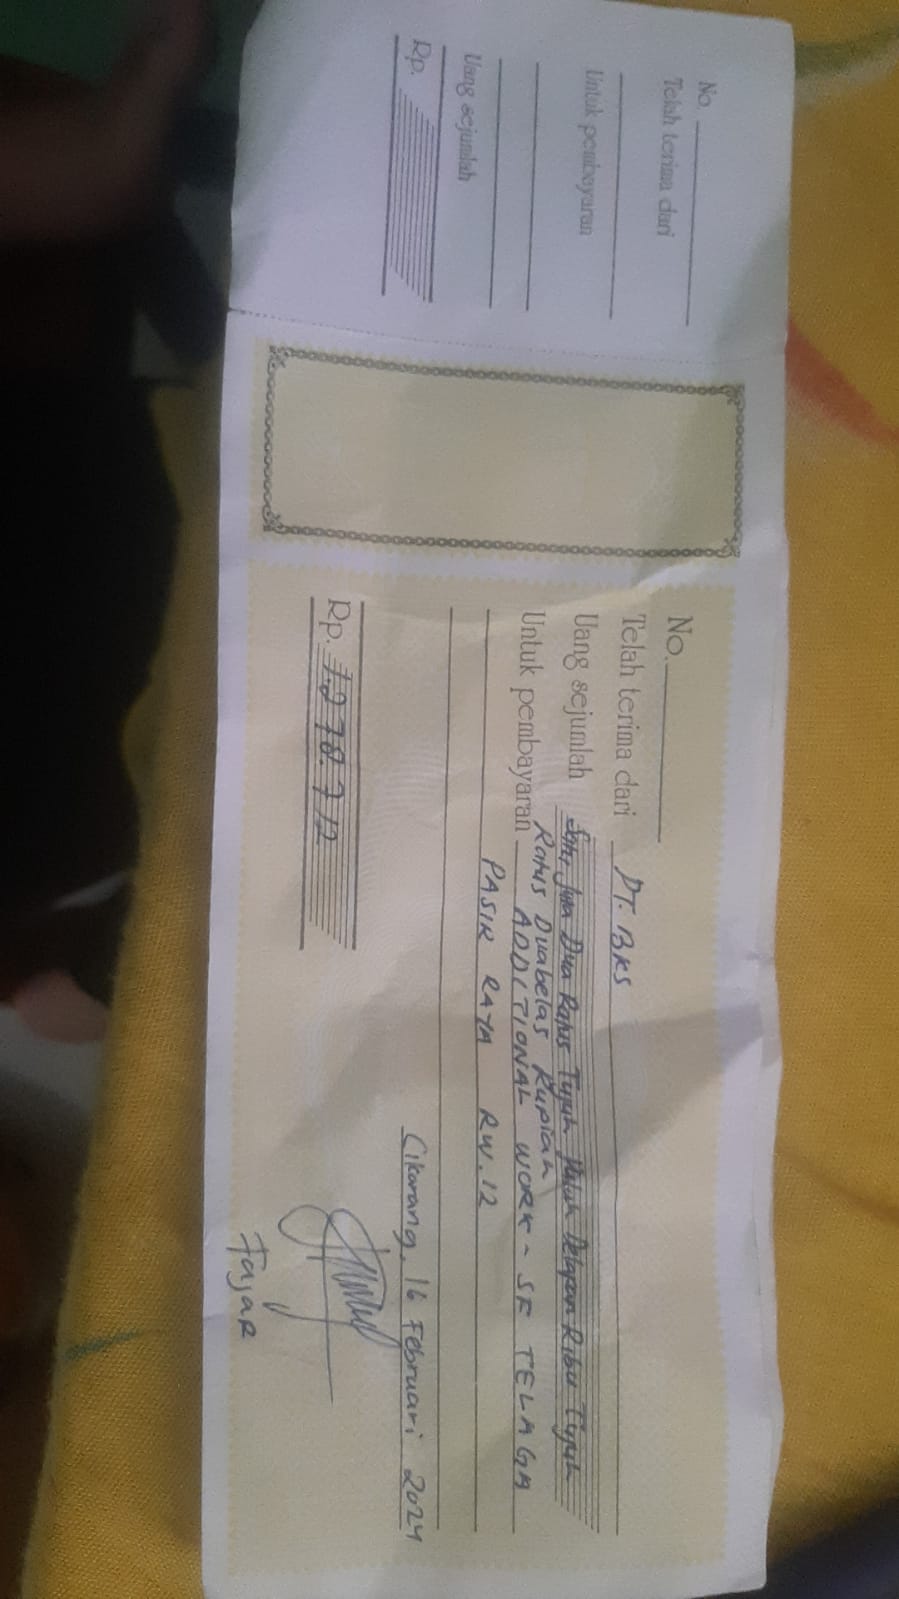 No.
Telah terima dari
Untuk pembayaran
Uang sejumlah
Rp.
No.
Telah terima dari PT. BKS
Uang sejumlah Satu Juta Dua Ratus Tujuh Puluh Delapan Ribu Tujuh
Ratus Duabelas Rupiah
Untuk pembayaran ADDITIONAL WORK - SF TELAGA
PASIR RAYA RW.12
Cikarang, 16 Februari 2024
Rp. 1.278.712
Fajar